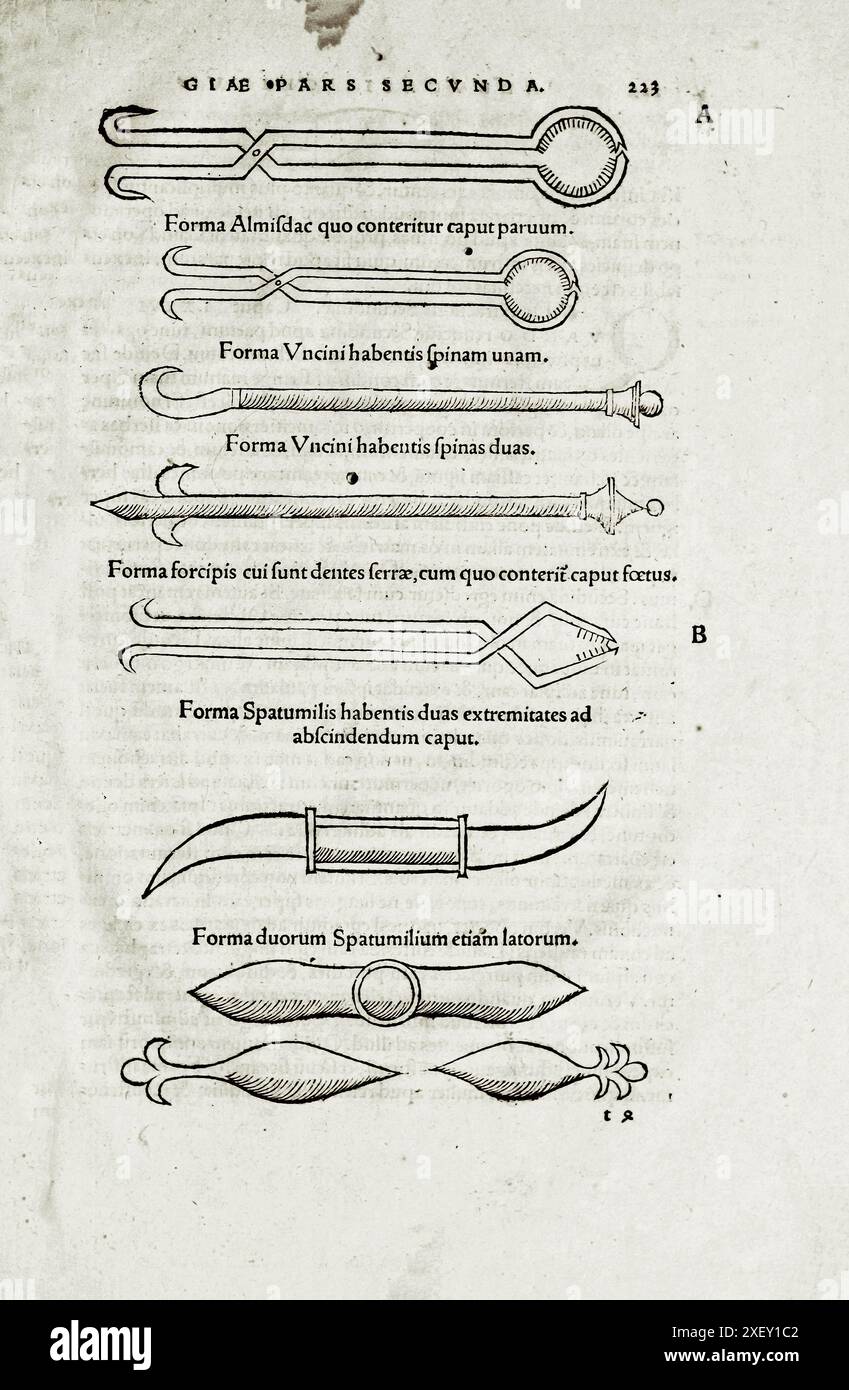 GIAE PARS SECVNDA. 223
A
Forma Almiſdac quo conteritur caput paruum.
Forma Vncini habentis ſpinam unam.
Forma Vncini habentis ſpinas duas.
Forma forcipis cui ſunt dentes ſerræ, cum quo conterit̃ caput fœtus.
B
Forma Spatumilis habentis duas extremitates ad
abſcindendum caput.
Forma duorum Spatumilium etiam latorum.
t
alamy
Image ID: 2XEY1C2
www.alamy.com